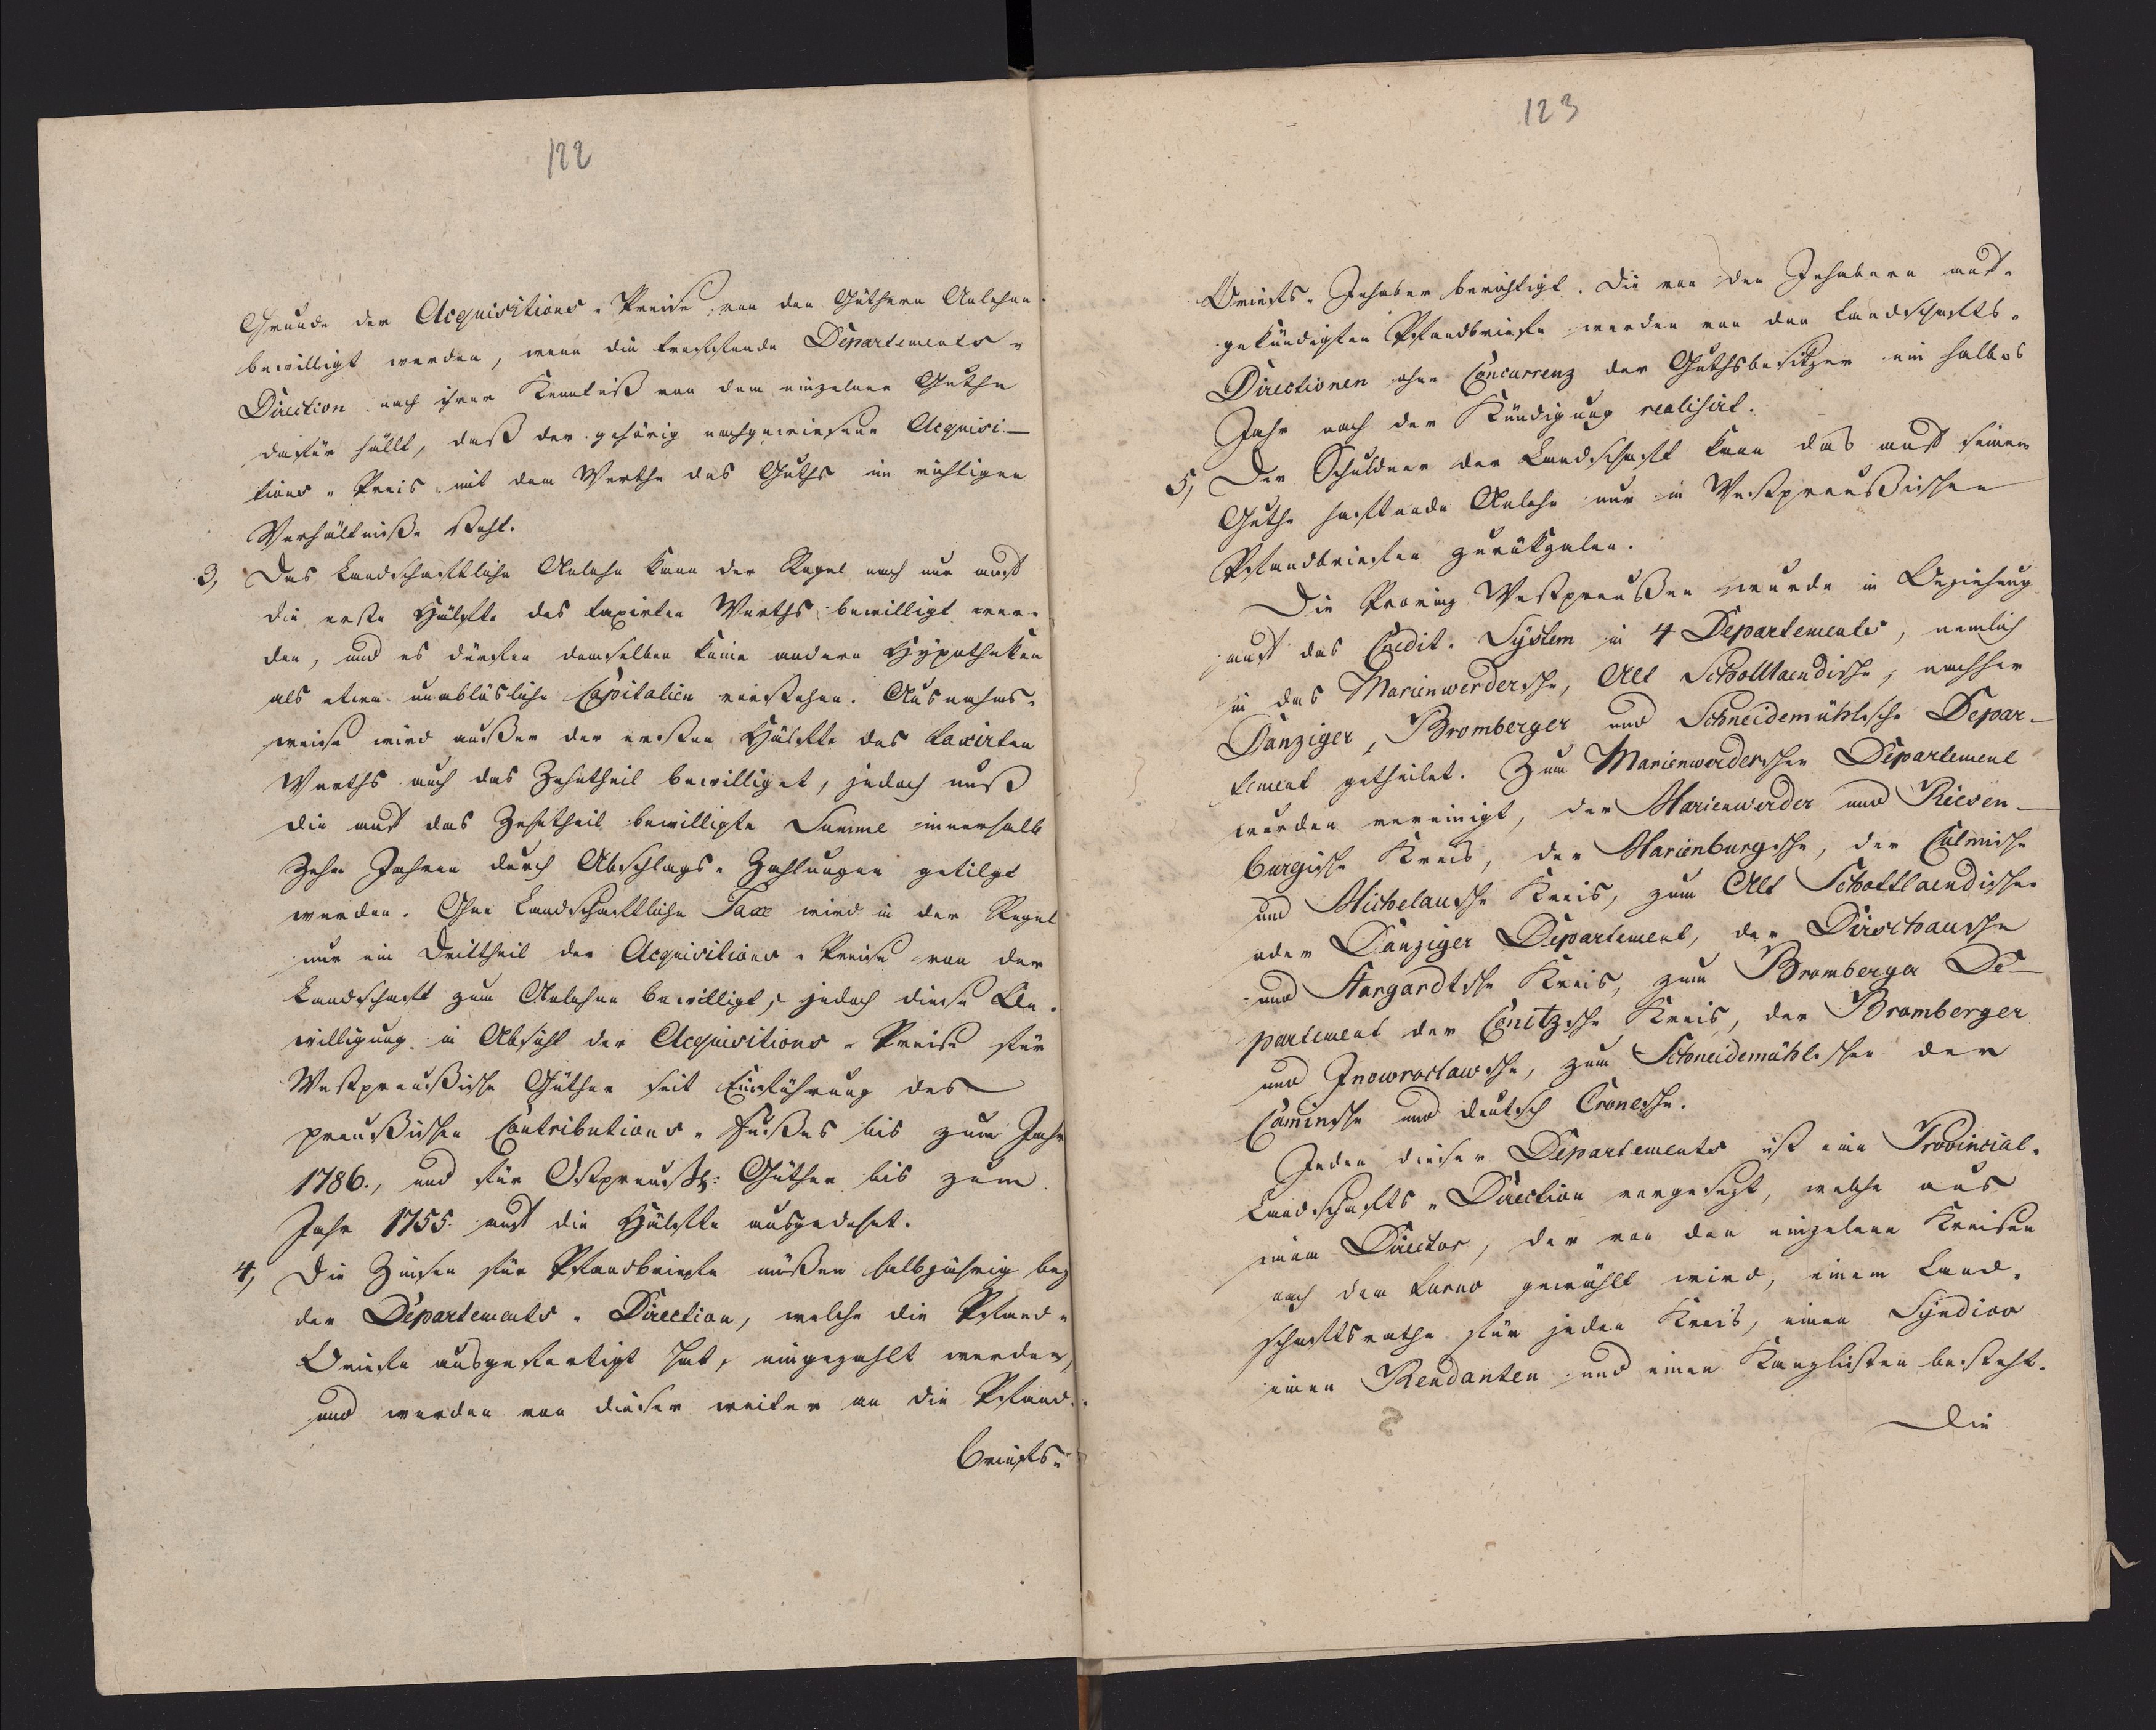 122
Grunde der Acquisitions-Preise, von den Güthern Anlehne
bewilligt werden, wenn die treffende Departements-
Direction nach ihrer Kenntniß von dem einzelnen Guthe
dafür hällt, daß der gehörig nachgewiesene Acquisi-
tions-Preis mit dem Werthe des Guths im richtigen
Verhältniße steht.
3, Das Landschaftliche Anlehn kann der Regel nach nur auf
die erste Hälfte des taxirten Werths bewilligt wer-
den, und es dürfen demselben keine andern Hypotheken
als etwa unablösliche Capitalien vorstehen. Ausnahms-
weise wird außer der ersten Hälfte des taxirten
Werths auch das Zehntheil bewilliget, jedoch muß
die auf das Zehntheil bewilligte Summe innerhalb
Zehn Jahren durch Abschlags-Zahlungen getilgt
werden. Ohne Landschaftliche Taxe wird in der Regel
nur ein Drittheil der Acquisitions-Preise von der
Landschaft zum Anlehne bewilligt, jedoch diese Be-
willigung in Absicht der Acquisitions-Preise für
Westpreußische Güther seit Einführung des
preußischen Contributions-Fußes bis zum Jahr
1786., und für Ostpreuß: Güther bis zum
Jahr 1755. auf die Hälfte ausgedehnt.
4, Die Zinsen für Pfandbriefe müßen halbjährig bey
der Departements-Direction, welche die Pfand-
Briefe ausgefertigt hat, eingezahlt werden,
und werden von dieser weiter an die Pfand-
briefs-
123
Briefs-Inhaber berichtigt. Die von den Inhabern auf-
gekündigten Pfandbriefe werden von den Landschafts-
Directionen ohne Concurrenz der Guthsbesitzer ein halbes
Jahr nach der Kündigung realisirt.
5, Der Schuldner der Landschaft kann das auf seinem
Guthe haftende Anlehn nur in Westpreußischen
Pfandbriefen zurükzalen.
Die Provinz Westpreußen wurde in Beziehung
auf das Credit-System in 4 Departements, nemlich
in das Marienwerdersche, Alt Schottlaendische, nachher
Danziger, Bromberger und Schneidemühlsche Depar-
tement getheilet. Zum Marienwerderschen Departement
wurden vereinigt, der Marienwerder und Riesen-
burgische Kreis, der Marienburgsche, der Culmische
und Michelausche Kreis, zum Alt Schottlaendischen
oder Danziger Departement, der Dirschausche
und Stargardtsche Kreis, zum Bromberger De-
partement der Conitzsche Kreis, der Bromberger
und Inowraclawsche, zum Schneidemühlschen der
Caminsche und deutsch Cronesche.
Jeden dieser Departements ist eine Provincial-
Landschafts-Direction vorgesezt, welche aus
einem Director, der von den einzelnen Kreisen
nach dem turno gewählt wird, einem Land-
schaftsrathe für jeden Kreis, einen Syndico
einen Rendanten und einen Kanzlisten besteht.
Die